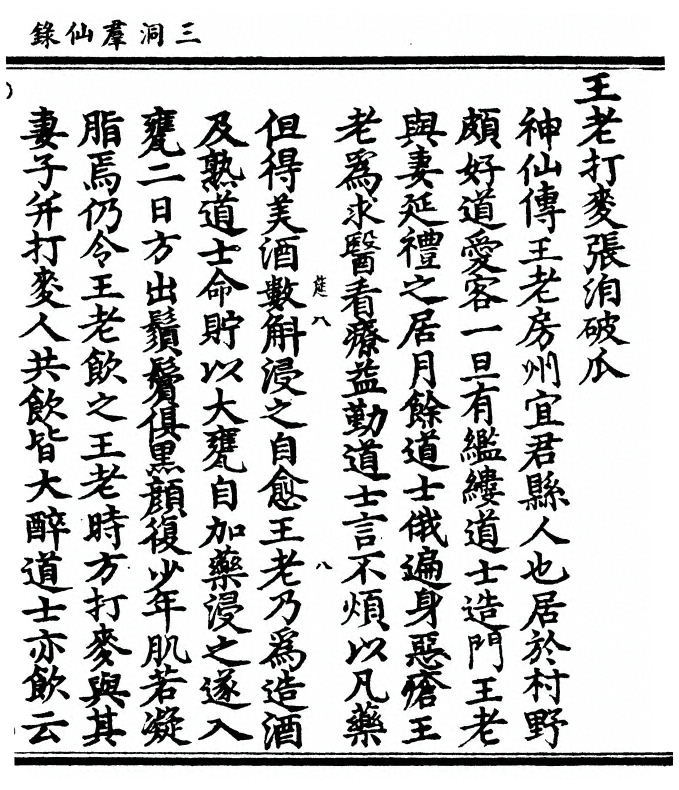 三洞羣仙錄
王老打麥張洎破瓜
神仙傳王老房州宜君縣人也居於村野
頗好道愛客一旦有繿縷道士造門王老
與妻延禮之居月餘道士俄遍身惡瘡王
老爲求醫看療益勤道士言不煩以凡藥
筵八
八
但得美酒數斛浸之自愈王老乃爲造酒
及熟道士命貯以大甕自加藥浸之遂入
甕二日方出鬚鬢俱黑顔復少年肌若凝
脂焉仍令王老飲之王老時方打麥與其
妻子并打麥人共飲皆大醉道士亦飲云